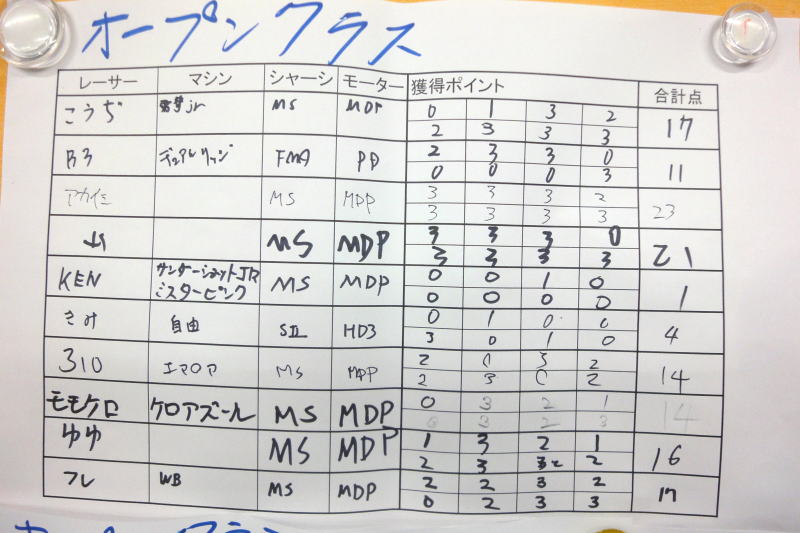 オープンクラス
レーサー マシン シャーシ モーター 獲得ポイント 合計点
こうぢ jr MS MDP 0 1 3 2 17
2 3 3 3
B3 デュアルリッジ FMA PD 2 3 3 0 11
0 0 0 3
アカイミ MS MDP 3 3 3 2 23
3 3 3 3
MS MDP 3 3 3 0 21
3 3 3 3
KEN サンダーショットJR MS MDP 0 0 1 0 1
ミスターピンク 0 0 0 0
きみ 自由 SⅡ HD3 0 1 0 0 4
3 0 1 0
310 エアロア MS MDP 2 0 3 2 14
2 3 0 2
モモケロ ケロアズール MS MDP 0 3 2 1 14
0 3 2 3
ゆゆ MS MDP 1 3 2 1 16
2 3 2
フレ WB MS MDP 2 2 3 2 17
0 2 3 3